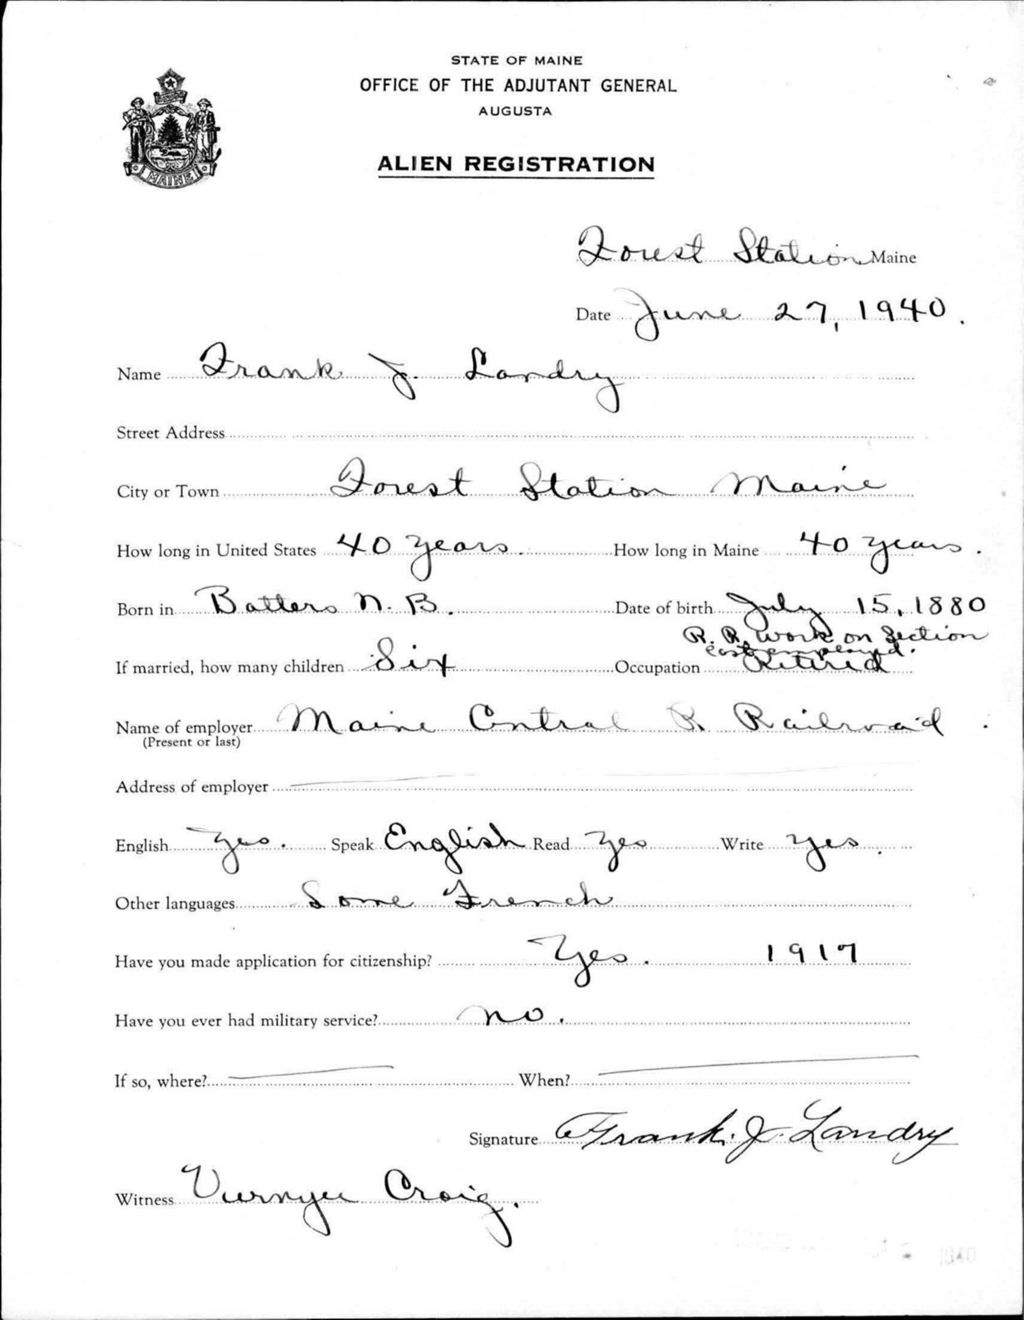 STATE OF MAINE
OFFICE OF THE ADJUTANT GENERAL
AUGUSTA
ALIEN REGISTRATION
MAINE
Forest Station Maine
Date June 27, 1940.
Name Frank J. Landry
Street Address
City or Town Forest Station Maine
How long in United States 40 years. How long in Maine 40 years.
Born in Batters N. B. Date of birth July 15, 1880
R. R. work on Section
last employed.
If married, how many children Six Occupation Retired
Name of employer Maine Central R Railroad.
(Present or last)
Address of employer
English Yes. Speak English Read Yes Write Yes.
Other languages Some French
Have you made application for citizenship? Yes. 1917
Have you ever had military service? no.
If so, where? When?
Signature Frank. J. Landry
Witness Craig.